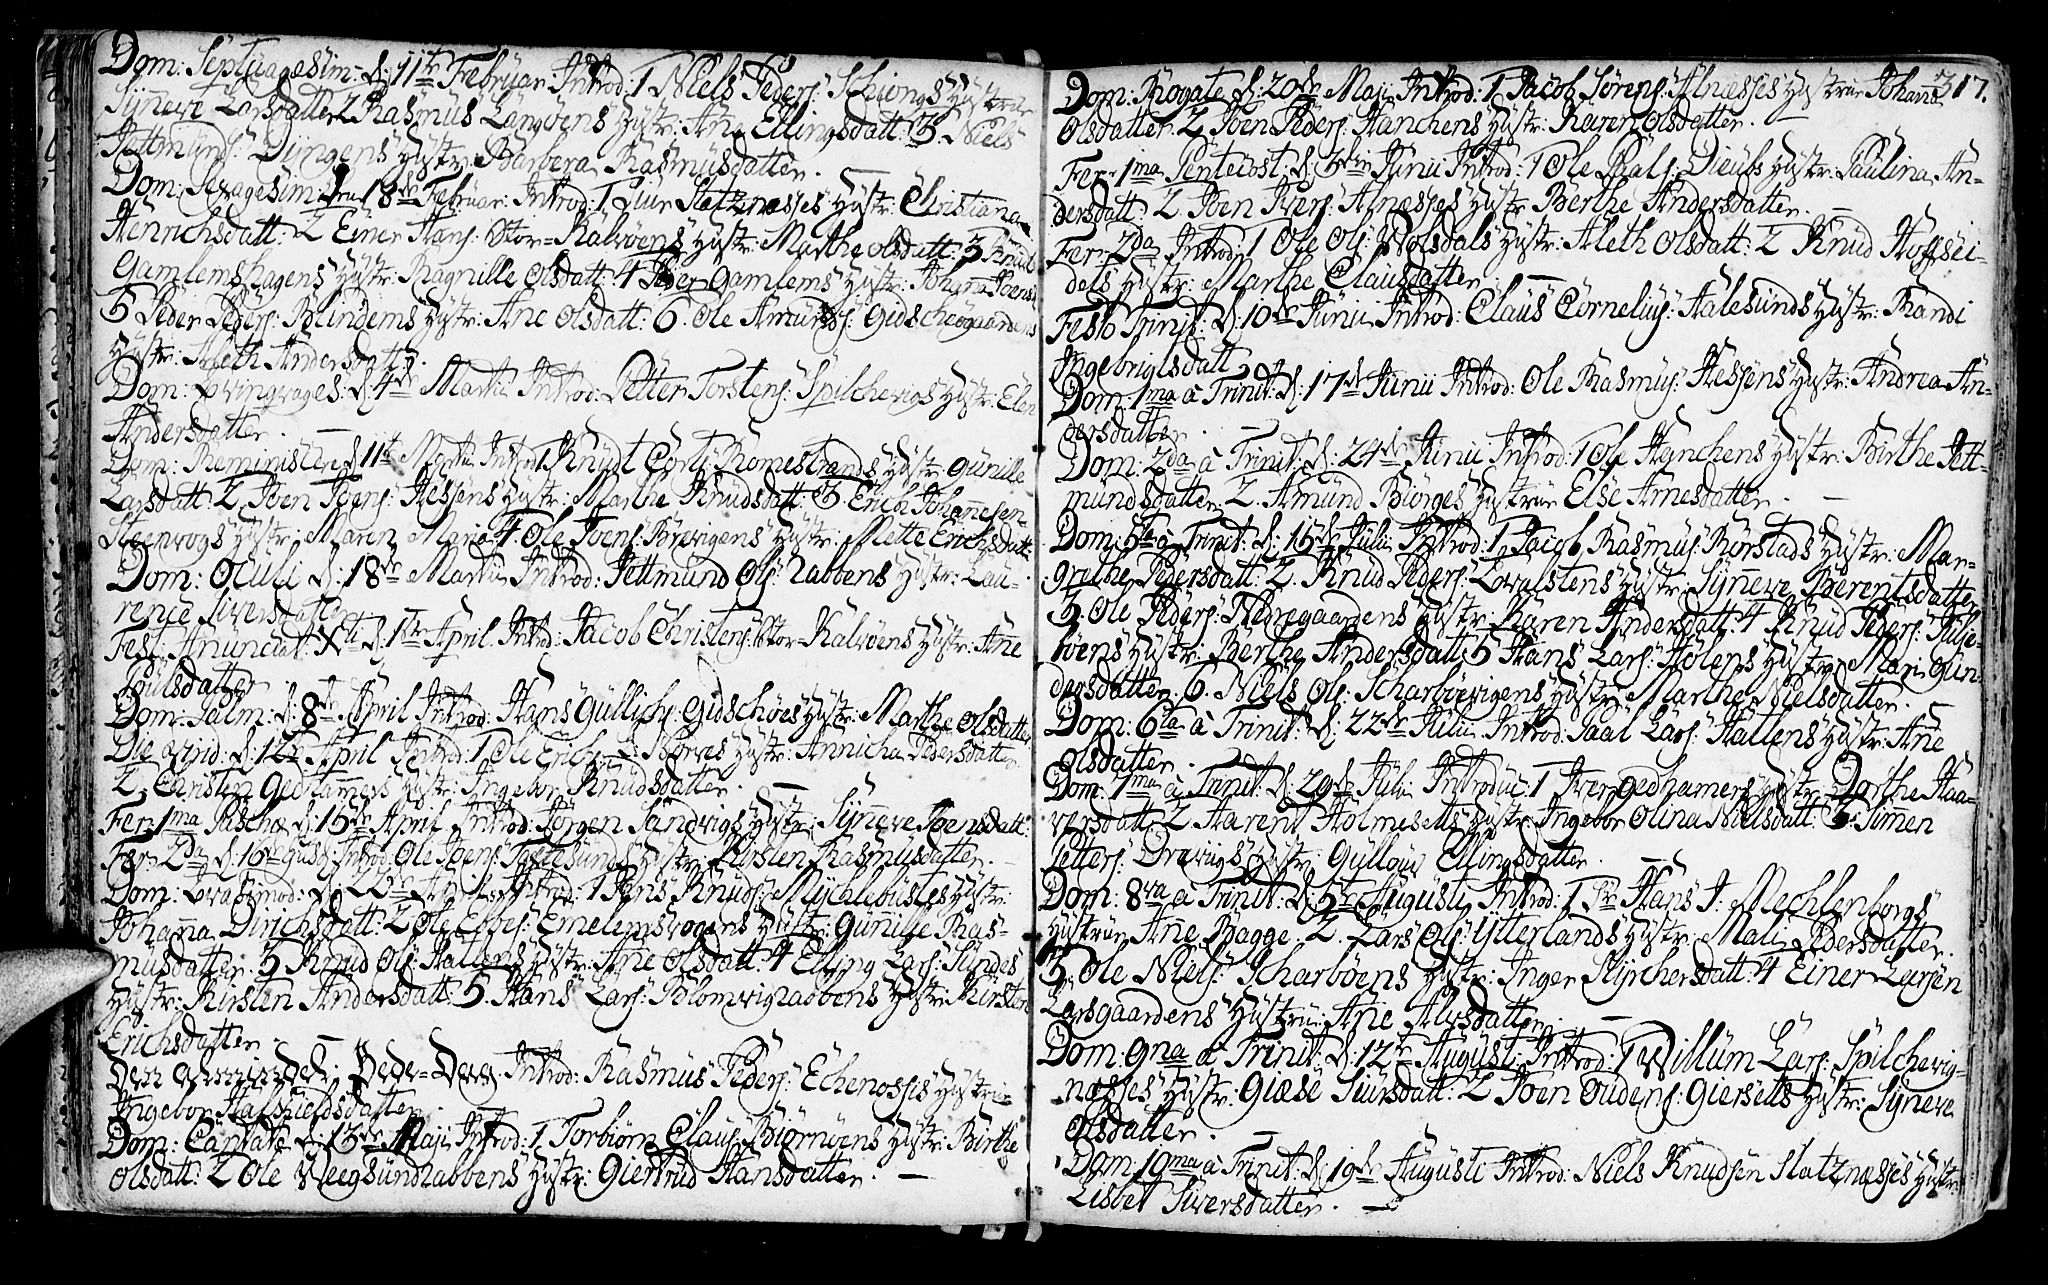 Dom: Septuagesim: d: 11te Februar: Introd: 1 Niels Peders: Schiongs Hustrue
Synneve Larsdatter 2 Rasmus Langvens Hustr: Ane Ellingsdatt: 3 Niels
Jettmunds: Dyngens Hustr: Barbera Rasmusdatter. —
Dom: Sexagesim: den 18de Februar: Introd: 1 Siur Slatznesses Hustr: Christiana
Henrichsdatt: 2 Einer Hans: Stor-Kalvøens Hustr: Marthe Olsdatt: 3 Knud
Gamlemshagens Hustr: Ragnille Olsdatt: 4 Peder Gamlems Hustr: Johanna Joens:
5 Peder Peders: Blindems Hustr: Ane Olsdatt: 6. Ole Amunds: Gidscheogaardens
Hustr: Aleth Andersdatter.
Dom: Qvinqvages: d: 4de Martii Introd: Petter Torstens: Spilchevigs Hustr: Elen
Andersdatter. —
Dom: Reminiscere d: 11te Martii Introd: 1 Knudt Corts: Romestrands Hustr: Gunille
Larsdatt: 2 Joen Joens: Hessens Hustr: Marthe Knudsdatt: 3 Erich Johannesen
Steenvogs Hustr: Maren Maria 4 Ole Joens: Brevigens Hustr: Mette Erichsdatt
Dom: Oculi d: 18de Martii Introd: Jettmund Ols: Rabbens Hustr: Lau-
rence Siversdatter
Fest: Anunciat: Xti d: 1te April: Introd: Jacob Christens: Stor-Kalvøens Hustr: Ane
Poulsdatter
Dom: Palm: d: 8de April Introd: Hans Gullichs: Gidschøes Hustr: Marthe Olsdatter
Die Virid: d: 12te April Introd: 1 Ole Erichs: Nørves Hustr: Annicha Pedersdatter
2 Christen Gedhamers Hustr: Ingebor Knudsdatter. —
Fer: 1ma Paschæ d: 15de April Introd: Jørgen Sandvigs Hustr: Synneve Joensdatt:
Fer: 2da d: 16 Introd: Ole Joens: Hustr: Kirsten Rasmusdatter. —
Dom: Qvasimod: d: 22de April: Introd: 1 Jens Knuds: Mychlebustes Hustr:
Johanna Dirichsdatt: 2 Ole Ebbes: Emelemsvogens Hustr: Gunnilje Ras-
musdatter. 3 Knud Ols: Hattens Hustr: Ane Olsdatt: 4 Elling Lars: Sundes
Hustr: Kirsten Andersdatt: 5. Hans Lars: Blomvigrabbens Hustr: Kirsten
Erichsdatter. —
Den Bede-Dag Introd: Rasmus Peders: Echenosses Hustrue
Ingebor Halfieldsdatter. —
Dom: Cantate d: 13de Maji Introd: 1. Torbiørn Claus: Biørnøens Hustr: Birthe
Olsdatt: 2 Ole Veegsundrabbens Hustr: Giertrud Hansdatter. —
317.
Dom: Rogate d: 20de Maji Introd: 1. Jacob Sørens: Alnesses Hustrue Johanna
Olsdatter. 2 Joen Peders: Hanchens Hustr: Karen Olsdatter. —
Fer: 1ma Pentecost d: 3die Junii Introd: 1 Ole Paals: Dieubs Hustr: Paulina An-
dersdatt: 2 Joen Ivers: Alnesses Hustr: Berthe Andersdatter. —
Fer: 2da Introd: 1 Ole Ols: Volsdals Hustr: Aleth Olsdatt: 2 Knud Hoffsei-
dets Hustr: Marthe Clausdatter —
Festo Trinit: d: 10de Junii Introd: Claus Cornelius: Aalesunds Hustr: Randi
Ingebriglsdatt
Dom: 1ma à Trinit: d: 17de Junii Introd: Ole Rasmus: Hessens Hustr: Andrea An-
dersdatter. —
Dom: 2da à Trinit: d: 24de Junii Introd: 1 Ole Hanchens Hustr: Birthe Jett-
mundsdatter. 2. Amund Biørges Hustrue Else Arnesdatter. —
Dom: 5ta à Trinit: d: 15de Julii Introd: 1. Jacob Rasmus: Rørstads Hustr: Mar-
grethe Pedersdatt: 2. Knud Peders: Qvalstens Hustr: Synneve Berentsdatter
3. Ole Peders: Nedregaardens Hustr: Karen Andersdatt: 4 Knud Peders: Silje-
bøens Hustr: Berthe Andersdatt: 5 Hans Lars: Holens Hustr: Mari Gun-
dersdatter. 6. Niels Ols: Scharbøevigens Hustr: Marthe Nielsdatter.
Dom: 6ta à Trinit: d: 22de Julii Introd: Paal Lars: Hattens Hustr: Ane
Olsdatter. —
Dom: à Trinit: d: 29de Julii Introduc: 1 Iver Gedhamers Hustr: Dorthe Haa-
versdatt: 2 Aarent Holmesetts Hustr: Ingebor Olina Nielsdatt: 3. Simen
Petters: Drevigs Hustr: Gulloug Ellingsdatter. —
Dom: 8va à Trinit: d: 5te Augusti Introd: 1 Sr Hans J: Mechlenborgs
Hustrue Ane Bagge. 2. Lars Ols: Ytterlands Hustr: Mali Pedersdatter.
3 Ole Niels: Scharbøens Hustr: Inger Styrchersdatt: 4 Einer Larsøn
Larsgaardens Hustrue Ane Alvsdatter. —
Dom: 9na à Trinit: d: 12te August: Introd: 1 Willum Lars: Spilchevig-
nesses Hustr: Giæse Siursdatt: 2 Joen Oudens: Giersetts Hustr: Syneve
Olsdatter. —
Dom: 10ma à Trinit: d: 19de Augusti Introd: Niels Knudsen Slatznesses Hustr:
Lisbet Siversdatter. —